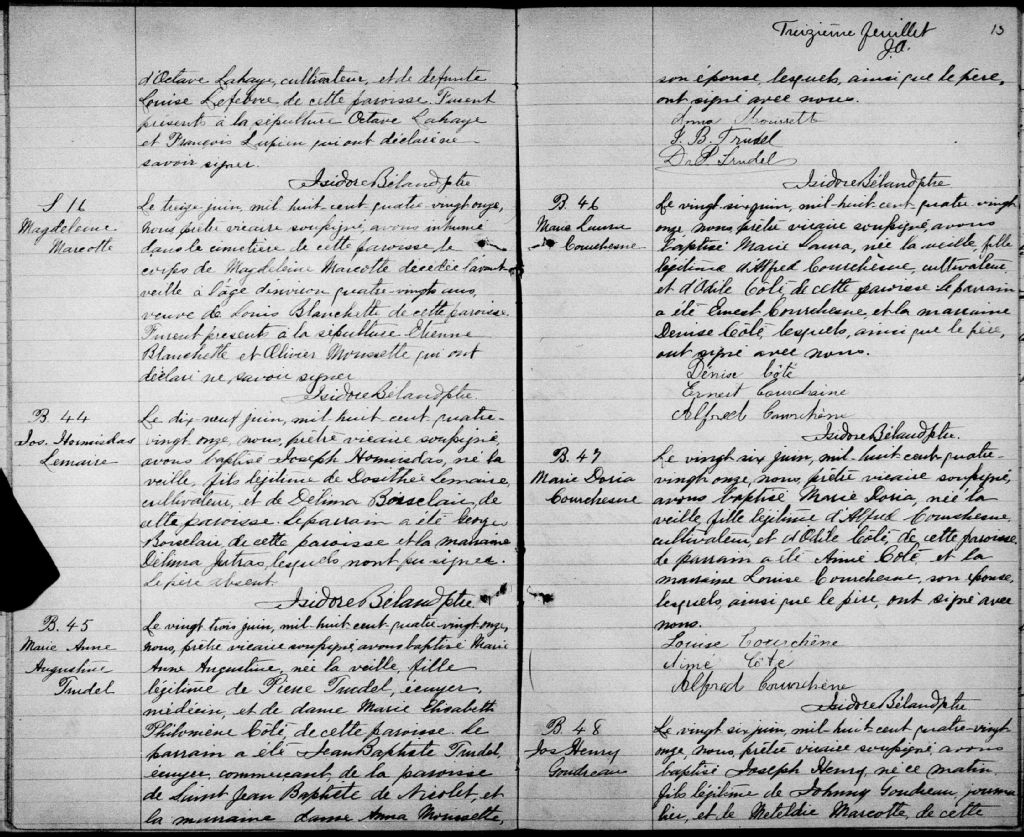 d'Octave Lahaye, cultivateur, et de defunte
Louise Lefebvre, de cette paroisse. Furent
présents à la sépulture Octave Lahaye
et François Lupien qui ont déclaré ne
savoir signer.
Isidore Béland Ptre
S 16
Magdeleine
Marcotte
Le treize juin, mil huit cent quatre-vingt onze,
nous, prêtre vicaire soussigné, avons inhumé
dans le cimetière de cette paroisse le
corps de Magdeleine Marcotte décédée l'avant
veille à l'âge d'environ quatre-vingts ans,
veuve de Louis Blanchette de cette paroisse.
Furent présents à la sépulture Etienne
Blanchette et Olivier Moussette qui ont
déclaré ne savoir signer
Isidore Béland Ptre.
B. 44
Jos. Hormisdas
Lemaire
Le dix neuf juin, mil huit cent quatre-
vingt onze, nous, prêtre vicaire soussigné,
avons baptisé Joseph Hormisdas, né la
veille, fils légitime de Dosithée Lemaire,
cultivateur, et de Délima Boisclair, de
cette paroisse. Le parrain a été George
Boisclair de cette paroisse et la marraine
Délima Jutras, lesquels, n'ont pu signer.
Le père absent.
Isidore Béland Ptre
B. 45
Marie Anne
Augustine
Trudel
Le vingt trois juin, mil huit cent quatre-vingt onze,
nous, prêtre vicaire soussigné avons baptisé Marie
Anne Augustine, née la veille, fille
légitime de Pierre Trudel, écuyer,
médecin, et de dame Marie Elisabeth
Philomène Côté, de cette paroisse. Le
parrain a été Jean Baptiste Trudel,
écuyer, commerçant, de la paroisse
de Saint Jean Baptiste de Nicolet, et
la marraine dame Anna Moussette,
Treizième feuillet
13
J.O.
son épouse, lesquels, ainsi que le père,
ont signé avec nous.
Anna Moussette
J. B. Trudel
Dr P. Trudel
Isidore Béland Ptre
B. 46
Marie Laura
Courchesne
Le vingt-six juin, mil huit cent quatre-vingt
onze, nous, prêtre vicaire soussigné, avons
baptisé Marie Laura, née la veille, fille
légitime d'Alfred Courchesne, cultivateur,
et d'Odile Côté, de cette paroisse. Le parrain
a été Ernest Courchesne, et la marraine
Denise Côté, lesquels, ainsi que le père,
ont signé avec nous.
Dénise Côté
Ernest Courchaine
Alfred Courchène
Isidore Béland Ptre.
B. 47
Marie Doria
Courchesne
Le vingt six juin, mil huit cent quatre-
vingt onze, nous, prêtre vicaire soussigné,
avons baptisé Marie Doria, née la
veille, fille légitime d'Alfred Courchesne,
cultivateur, et d'Odile Côté, de cette paroisse.
Le parrain a été Aimé Côté et la
marraine Louise Courchesne, son épouse,
lesquels, ainsi que le père, ont signé avec
nous.
Louise Courchène
Aimé Côté
Alfred Courchène
Isidore Béland Ptre
B. 48
Jos Henry
Goudreau
Le vingt six juin, mil huit cent quatre-vingt
onze, nous, prêtre vicaire soussigné, avons
baptisé Joseph Henry, né ce matin,
fils légitime de Johnny Goudreau, journa
lier, et de Meteldie Marcotte, de cette